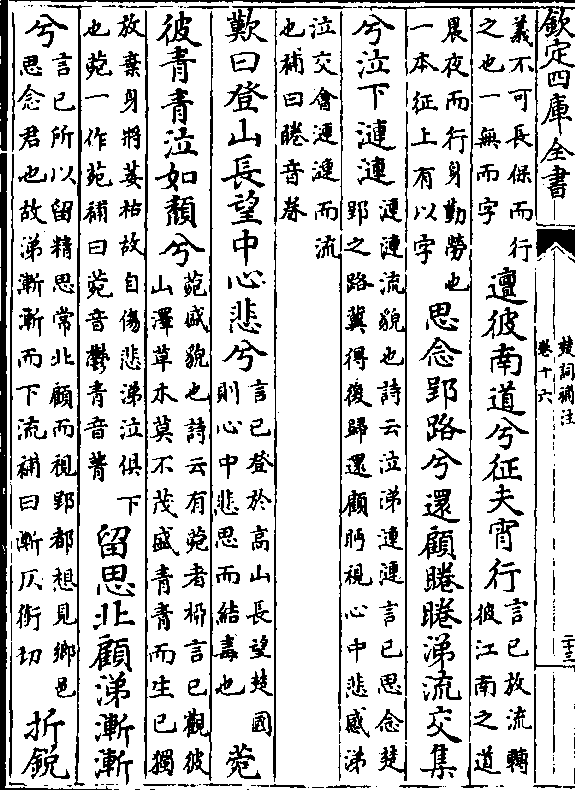 欽定四庫全書
楚詞補注
卷十六
二十三
義不可長保而行
之也一無而字
邅彼南道兮征夫宵行
言已放流轉
彼江南之道
晨夜而行身勤勞也
一本征上有以字
思念郢路兮還顧睠睠涕流交集
兮泣下漣漣
漣漣流貌也詩云泣涕漣漣言已思念楚
郢之路冀得復歸還顧眄視心中悲感涕
泣交會漣漣而流
也補曰睠音眷
歎曰登山長望中心悲兮
言已登於高山長望楚國
則心中悲思而結毒也
菀
彼青青泣如頽兮
菀盛貌也詩云有菀者栁言已觀彼
山澤草木莫不茂盛青青而生已獨
放棄身將萎枯故自傷悲涕泣俱下
也菀一作苑補曰菀音鬱青音菁
留思北顧涕漸漸
兮
言已所以留精思常北顧而視郢都想見鄉邑
思念君也故涕漸漸而下流補曰漸仄銜切
折銳